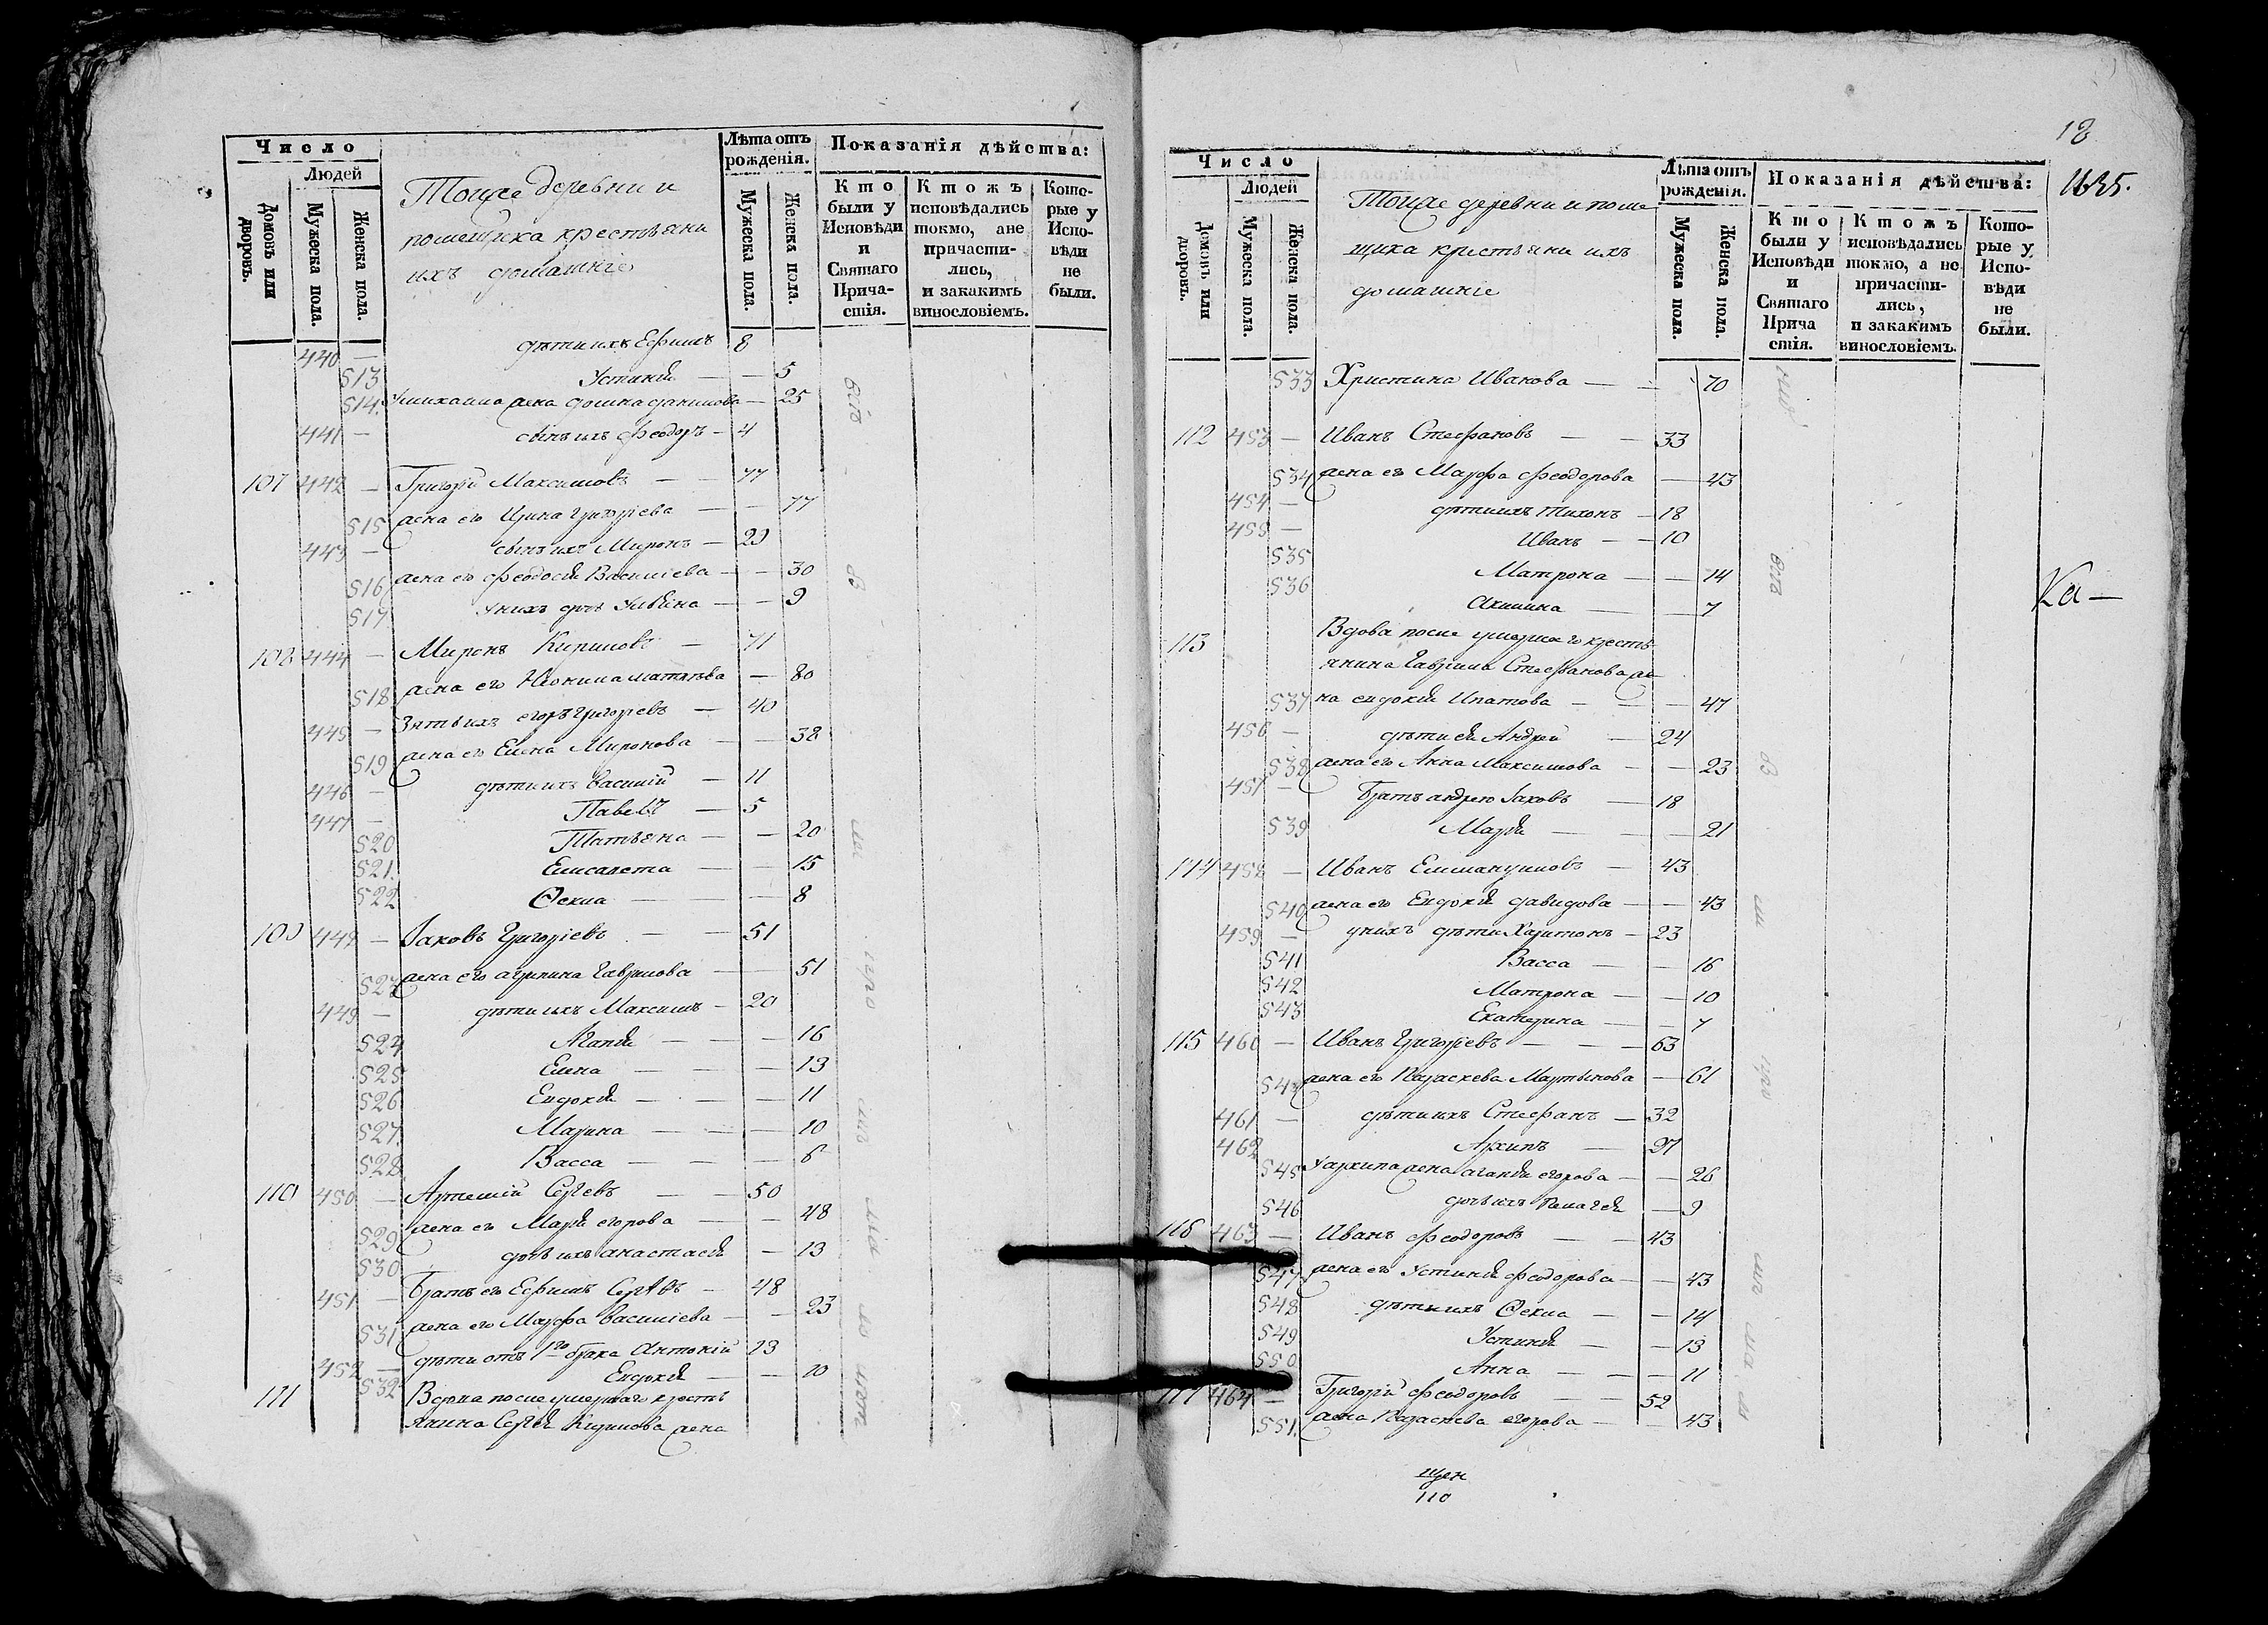 Число
Людей
Домовъ или дворовъ.
Мужеска пола.
Женска пола.
Тоиже деревни и
помещика крестьяни
ихъ домашние
Лѣта отъ рожденія.
Мужеска пола.
Женскъ пола.
Показанія дѣйства:
Кто были у Исповѣди и Святаго Причастія.
Ктожъ исповѣдались токмо, ане причастились, и закакимъ винословіемъ.
Которые у Исповѣди не были.
440 — дѣти ихъ Ефимъ 8
513 Устинія — — 5
514. Умихаила жена домна данилова — 25
441 — сынъ ихъ феодоръ — 4
107 442 — Григорій Максимовъ — — 77
515 жена его Ирина григоріева — — 77
443 — сынъ ихъ Миронъ — 29
516 жена его феодосія Василіева — — 30
517 Унихъ дочь Улияна — — 9
108 444 — Миронъ Кириловъ — 71
518 жена его Неонила матвѣва — 80
445 — Зять ихъ егоръ григорьевъ — 40
519 жена его Елена Миронова — — 38
446 — дѣти ихъ василій — 11
447 — Павелъ — 5
520 Татьяна — — 20
521. Елисавета — — 15
522 Ѳекла — — 8
109 448 — Іаковъ Григоріевъ — — 51
523 жена его агрипина гаврилова — — 51
449 — дѣти ихъ Максимъ — 20
524 Агапія — — — 16
525 Елена — — — 13
526 Евдокія — — — 11
527. Марина — — — 10
528 Васса — — — 6
110 450 — Артемій Сергѣевъ — — 50
529 жена его Марія егорова — — 48
530 дочь ихъ анастасія — 13
451 — Братъ его Ефимъ Сергѣвъ — 48
531 жена его Марфа василіева — — 23
452 — дѣти отъ 1го брака Антоній 23
532 Евдокія — — 20
111 Вдова после умершаго кресть
янина Сергѣя Кирилова жена
18
1835.
Число
Людей
Домовъ или дворовъ.
Мужеска пола.
Женска пола.
Тоиже деревни и поме
щика крестьяни ихъ
домашніе
Лѣта отъ рожденія.
Мужеска пола.
Женска пола.
Показанія дѣйства:
Кто были у Исповѣди и Святаго Прича стія.
Ктожъ исповѣдались токмо, а не причастились, и закакимъ винословіемъ.
Которые у Исповѣди не были.
533 Христина Иванова — — 70
112 453 — Иванъ Стефановъ — — 33
534 жена его Марфа феодорова — 43
454 — дѣти ихъ тихонъ — 18
455 — Иванъ — — 10
535 Матрона — — 14
536 Акилина — — 7
Ка—
113 Вдова после умершаго кресть
янина гаврила Стефанова же
537 на евдокія Ипатова — — 47
456 — дѣти ея Андрей — 24
538 жена его Анна Максимова — — 23
457 — братъ андрею Іаковъ — 18
539 Марія — — — 21
114 458 — Иванъ Еммануиловъ — 43
540 жена его Евдокія давидова — — 43
459 — унихъ дѣти Харитонъ — 23
541 Васса — — 16
542 Матрона — — 10
543 Екатерина — — 7
115 460 — Иванъ Григорьевъ — — — 63
544 жена его Параскева Мартынова — 61
461 — дѣти ихъ Стефанъ — 32
462 Архипъ — 27
545 Уархипа жена агапія егорова — — 26
546 дочь ихъ Пелагея — 9
116 463 — Иванъ феодоровъ — — 43
547 жена его Устинія феодорова — — 43
548 дѣти ихъ Ѳекла — — 14
549 Устинія — — 13
550 Анна — — — 11
117 464 — Григорій феодоровъ — — 52
551. жена Параскева егорова — — 43
110